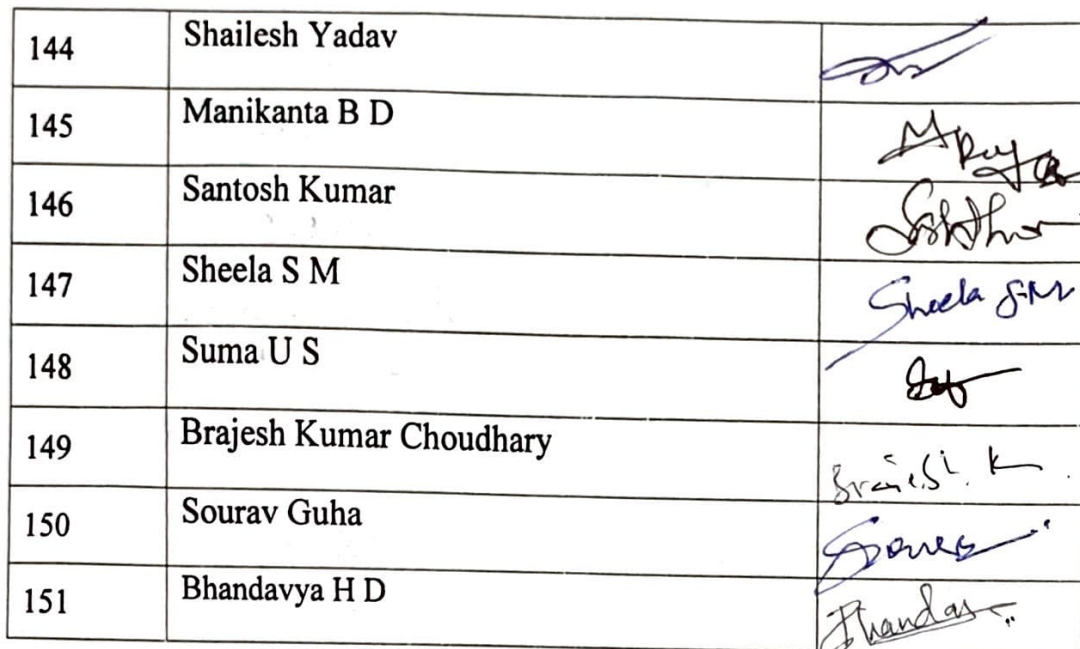 144 Shailesh Yadav
145 Manikanta B D
146 Santosh Kumar
147 Sheela S M Sheela S.M
148 Suma U S
149 Brajesh Kumar Choudhary
150 Sourav Guha
151 Bhandavya H D